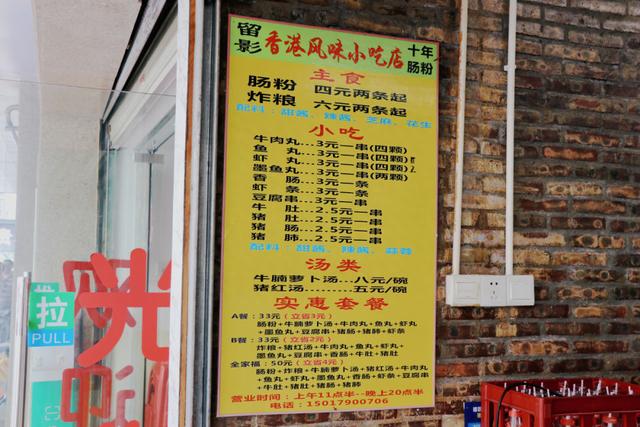 留影 香港风味小吃店 十年肠粉
主食
肠粉 四元两条起
炸粮 六元两条起
配料：甜酱、辣酱、芝麻、花生
小吃
牛肉丸...3元一串(四颗)
鱼丸...3元一串(四颗)
虾丸...3元一串(四颗)
墨鱼丸...3元一串(两颗)
香肠...3元一条
虾条...3元一条
豆腐串...3元一串
牛肚...2.5元一串
猪肚...2.5元一串
猪肠...2.5元一串
猪肺...2.5元一串
配料：甜酱、辣酱、蒜蓉
汤类
牛腩萝卜汤...八元/碗
猪红汤........五元/碗
实惠套餐
A餐：33元（立省3元）
肠粉+牛腩萝卜汤+牛肉丸+鱼丸+虾丸
+墨鱼丸+豆腐串+猪肠+猪肺+虾条
B餐：33元（立省2元）
炸粮+猪红汤+牛肉丸+鱼丸+虾丸+
墨鱼丸+豆腐串+香肠+牛肚+猪肚
全家福：50元（立省4元）
肠粉+炸粮+牛腩萝卜汤+猪红汤+牛肉丸
+鱼丸+虾丸+墨鱼丸+香肠+虾条+豆腐串
+牛肚+猪肚+猪肠+猪肺
营业时间：上午11点半--晚上20点半
电话：15017900706
拉
PULL